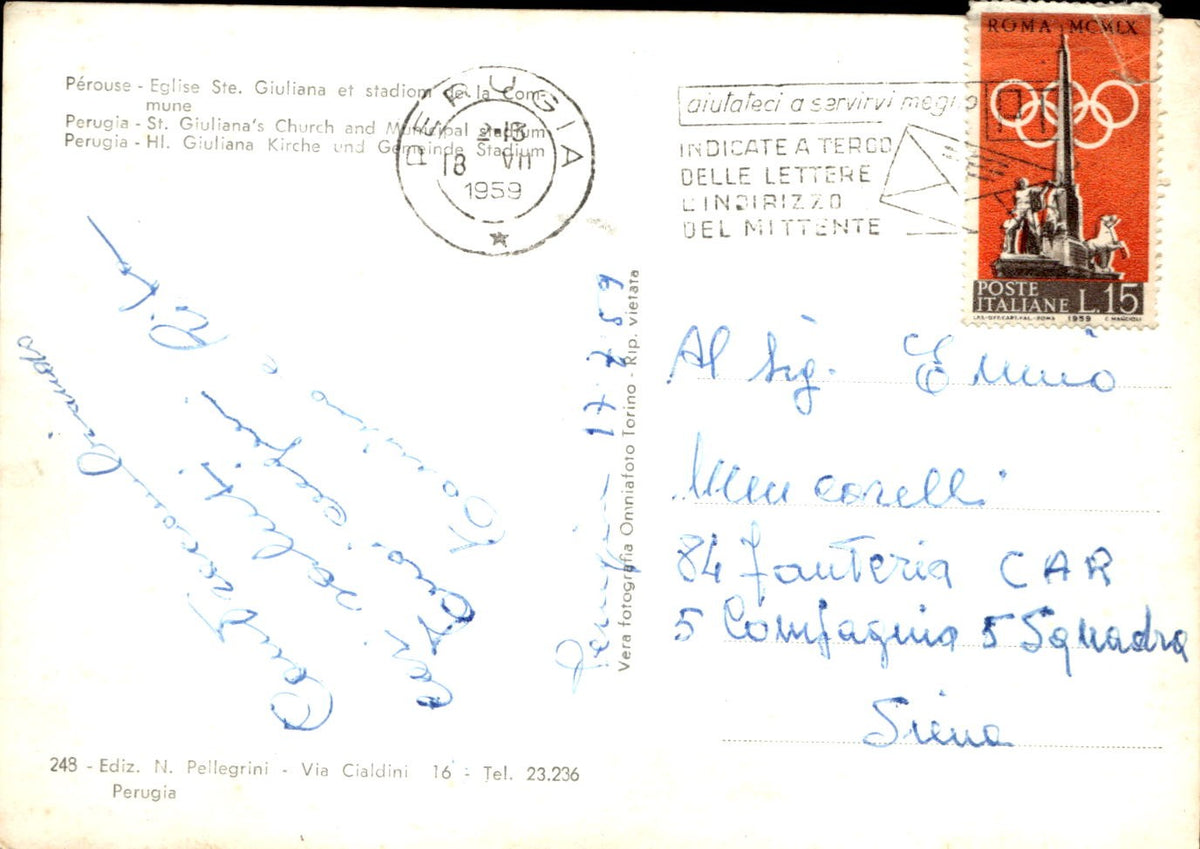 Pérouse - Eglise Ste. Giuliana et stadiom de la Com-
mune
Perugia - St. Giuliana's Church and Municipal stadium
Perugia - Hl. Giuliana Kirche und Gemeinde Stadium
PERUGIA
18 VII
1959
aiutateci a servirvi meglio
INDICATE A TERGO
DELLE LETTERE
L'INDIRIZZO
DEL MITTENTE
ROMA MCMLX
POSTE
ITALIANE L.15
I.P.S.-OFF.CART.VAL.-ROMA 1959 C. MANCIOLI
Perugia 17 7 59
Vera fotografia Omniafoto Torino - Rip. vietata
Cari saluti
Tuoi cugini
e Rita
Al Sig. Ennio
Mencarelli
84 Fanteria CAR
5 Compagnia 5 Squadra
Siena
248 - Ediz. N. Pellegrini - Via Cialdini 16 - Tel. 23.236
Perugia